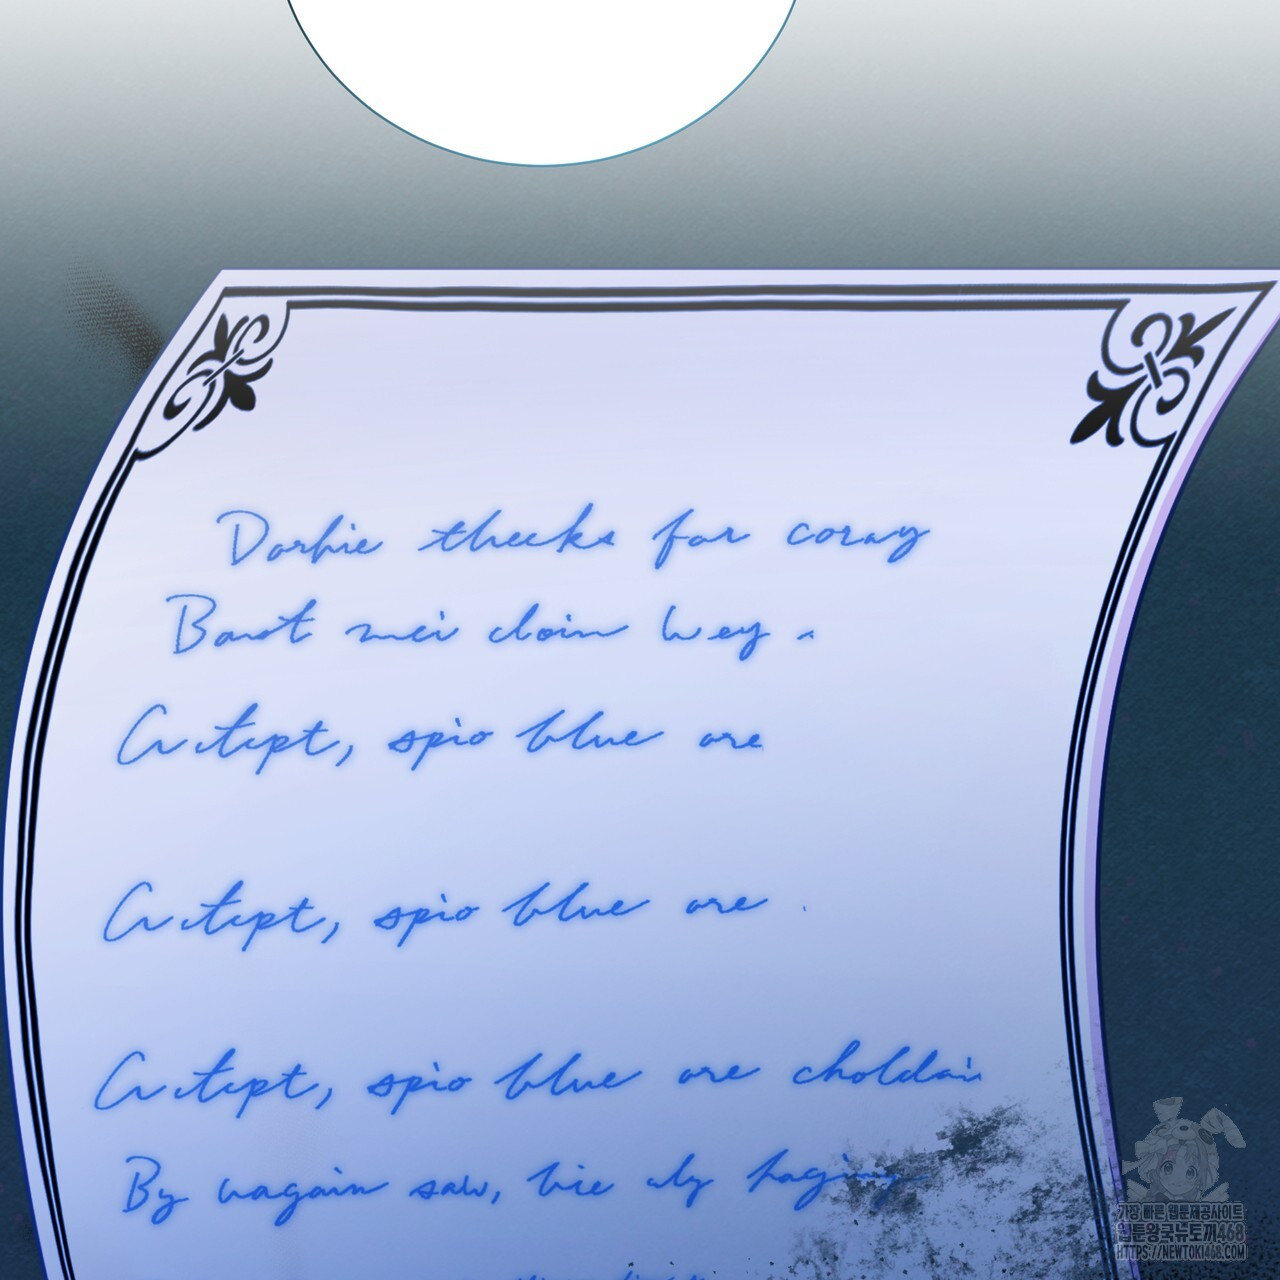 Dorhie thecks for coray
Baot mei cloin wey.
Cvtcpt, spio blue are
Cvtcpt, spio blue are.
Cvtcpt, spio blue are choldai
By vagain saw, bie uly haging
가장 빠른 웹툰제공사이트
웹툰왕국뉴토끼468
HTTPS://NEWTOKI468.COM